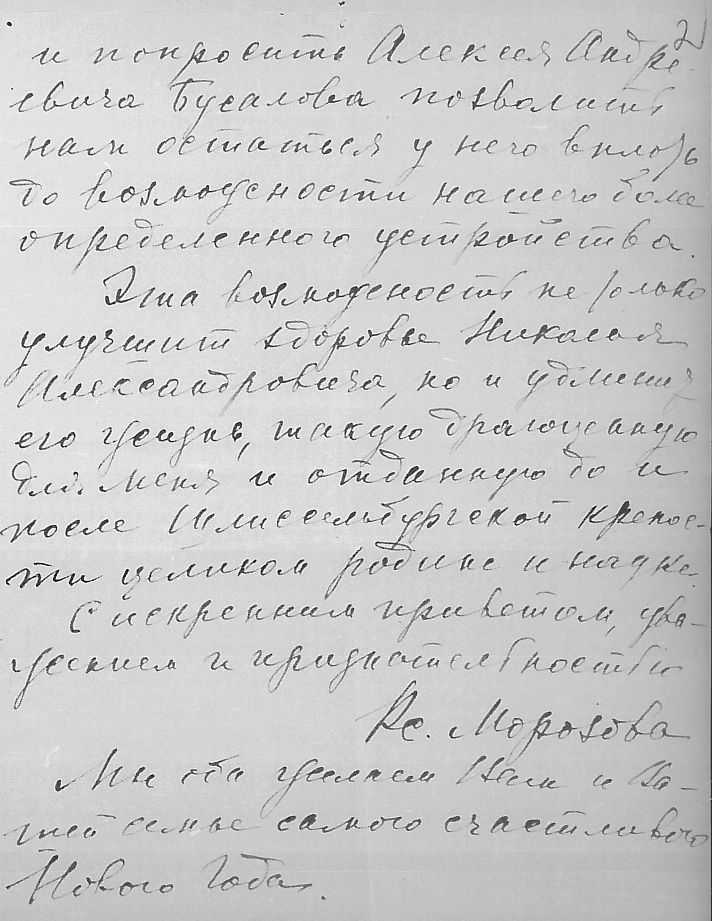 2
и попросить Алексея Андре-
евича Бусалова позволить
нам остаться у него вплоть
до возможности нашего более
определенного устройства.
Эта возможность не только
улучшит здоровье Николая
Александровича, но и удлинит
его жизнь, такую драгоценную
для меня и отданную до и
после Шлиссельбургской крепос-
ти целиком родине и науке.
С искренним приветом, ува-
жением и признательностью
Кс. Морозова
Мы оба желаем Вам и Ва-
шей семье самого счастливого
Нового Года.